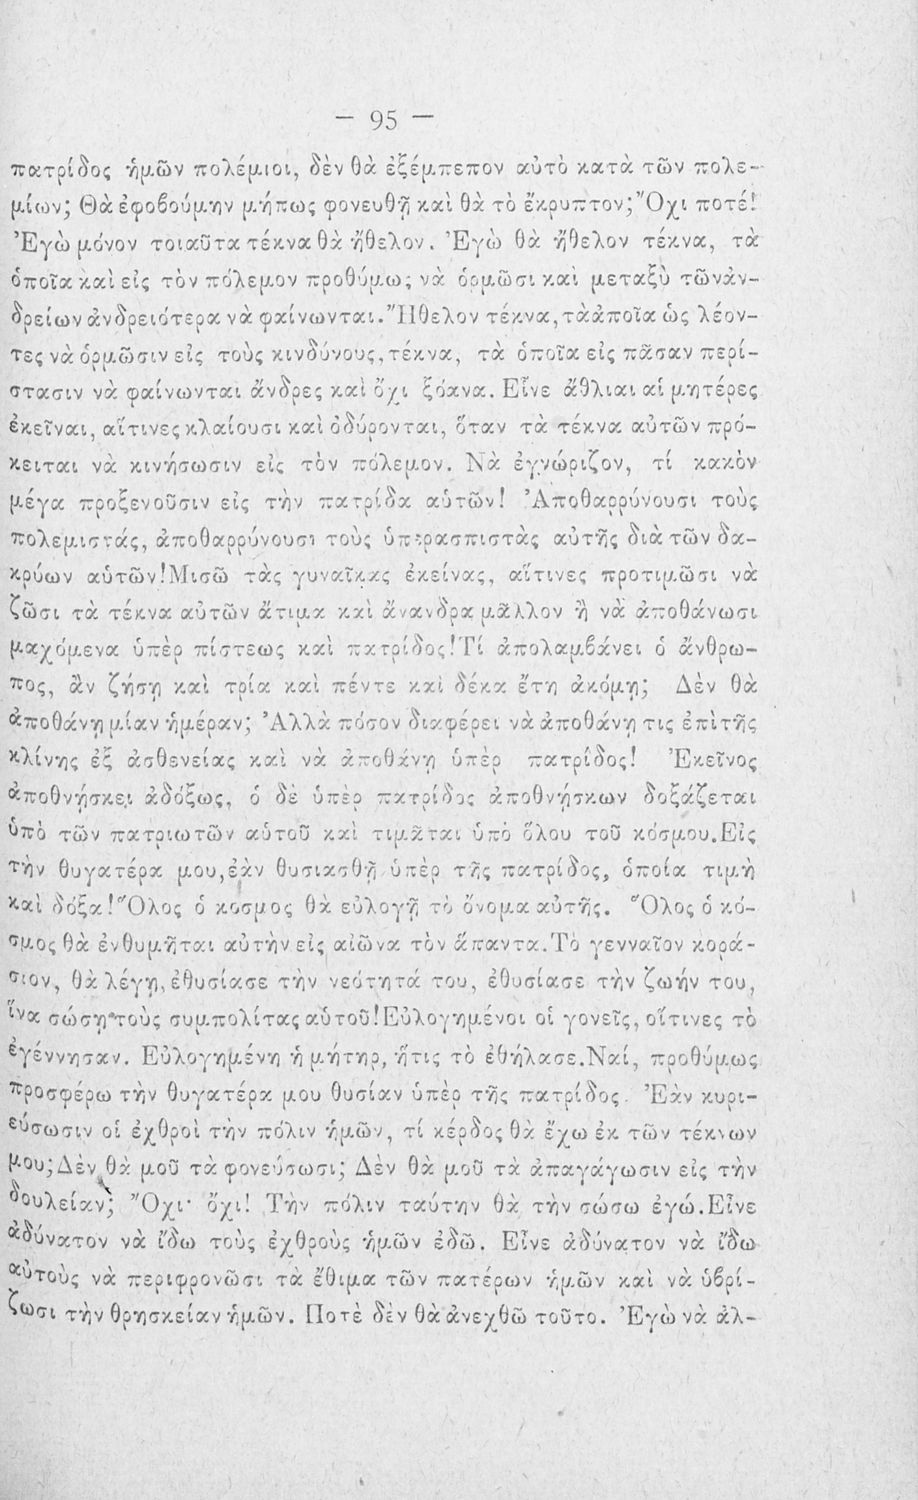 — 95 —
πατρίδος ἡμῶν πολέμιοι, δὲν θὰ ἐξέμπεπον αὐτὸ κατὰ τῶν πολε-
μίων; Θὰ ἐφοβούμην μήπως φονευθῇ καὶ θὰ τὸ ἔκρυπτον; Ὄχι ποτέ!
Ἐγὼ μόνον τοιαῦτα τέκνα θὰ ἤθελον. Ἐγὼ θὰ ἤθελον τέκνα, τὰ
ὁποῖα καὶ εἰς τὸν πόλεμον προθύμως νὰ ὁρμῶσι καὶ μεταξὺ τῶν ἀν-
δρείων ἀνδρειότερα νὰ φαίνωνται. Ἤθελον τέκνα, τὰ ἀποῖα ὡς λέον-
τες νὰ ὁρμῶσιν εἰς τοὺς κινδύνους, τέκνα, τὰ ὁποῖα εἰς πᾶσαν περί-
στασιν νὰ φαίνωνται ἄνδρες καὶ ὄχι ξόανα. Εἶνε ἄθλιαι αἱ μητέρες
ἐκεῖναι, αἵτινες κλαίουσι καὶ ὀδύρονται, ὅταν τὰ τέκνα αὐτῶν πρό-
κειται νὰ κινήσωσιν εἰς τὸν πόλεμον. Νὰ ἐγνώριζον, τί κακὸν
μέγα προξενοῦσιν εἰς τὴν πατρίδα αὑτῶν! Ἀποθαρρύνουσι τοὺς
πολεμιστάς, ἀποθαρρύνουσι τοὺς ὑπερασπιστὰς αὐτῆς διὰ τῶν δα-
κρύων αὑτῶν! Μισῶ τὰς γυναῖκας ἐκείνας, αἵτινες προτιμῶσι νὰ
ζῶσι τὰ τέκνα αὐτῶν ἄτιμα καὶ ἄνανδρα μᾶλλον ἢ νὰ ἀποθάνωσι
μαχόμενα ὑπὲρ πίστεως καὶ πατρίδος! Τί ἀπολαμβάνει ὁ ἄνθρω-
πος, ἂν ζήσῃ καὶ τρία καὶ πέντε καὶ δέκα ἔτη ἀκόμη; Δὲν θὰ
ἀποθάνῃ μίαν ἡμέραν; Ἀλλὰ πόσον διαφέρει νὰ ἀποθάνῃ τις ἐπὶ τῆς
κλίνης ἐξ ἀσθενείας καὶ νὰ ἀποθάνῃ ὑπὲρ πατρίδος! Ἐκεῖνος
ἀποθνήσκει ἀδόξως, ὁ δὲ ὑπὲρ πατρίδος ἀποθνήσκων δοξάζεται
ὑπὸ τῶν πατριωτῶν αὑτοῦ καὶ τιμᾶται ὑπὸ ὅλου τοῦ κόσμου. Εἰς
τὴν θυγατέρα μου, ἐὰν θυσιασθῇ ὑπὲρ τῆς πατρίδος, ὁποία τιμὴ
καὶ δόξα! Ὅλος ὁ κοσμος θὰ εὐλογῇ τὸ ὄνομα αὐτῆς. Ὅλος ὁ κό-
σμος θὰ ἐνθυμῆται αὐτὴν εἰς αἰῶνα τὸν ἅπαντα. Τὸ γενναῖον κορά-
σιον, θὰ λέγῃ, ἐθυσίασε τὴν νεότητά του, ἐθυσίασε τὴν ζωήν του,
ἵνα σώσῃ τοὺς συμπολίτας αὑτοῦ! Εὐλογημένοι οἱ γονεῖς, οἵτινες τὸ
ἐγέννησαν. Εὐλογημένη ἡ μήτηρ, ἥτις τὸ ἐθήλασε. Ναί, προθύμως
προσφέρω τὴν θυγατέρα μου θυσίαν ὑπὲρ τῆς πατρίδος. Ἐὰν κυρι-
εύσωσιν οἱ ἐχθροὶ τὴν πόλιν ἡμῶν, τί κέρδος θὰ ἔχω ἐκ τῶν τέκνων
μου; Δὲν θὰ μοῦ τὰ φονεύσωσι; Δὲν θὰ μοῦ τὰ ἀπαγάγωσιν εἰς τὴν
δουλείαν; Ὄχι· ὄχι! Τὴν πόλιν ταύτην θὰ τὴν σώσω ἐγώ. Εἶνε
ἀδύνατον νὰ ἴδω τοὺς ἐχθροὺς ἡμῶν ἐδῶ. Εἶνε ἀδύνατον νὰ ἴδω
αὐτοὺς νὰ περιφρονῶσι τὰ ἔθιμα τῶν πατέρων ἡμῶν καὶ νὰ ὑβρί-
ζωσι τὴν θρησκείαν ἡμῶν. Ποτὲ δὲν θὰ ἀνεχθῶ τοῦτο. Ἐγὼ νὰ ἀλ-